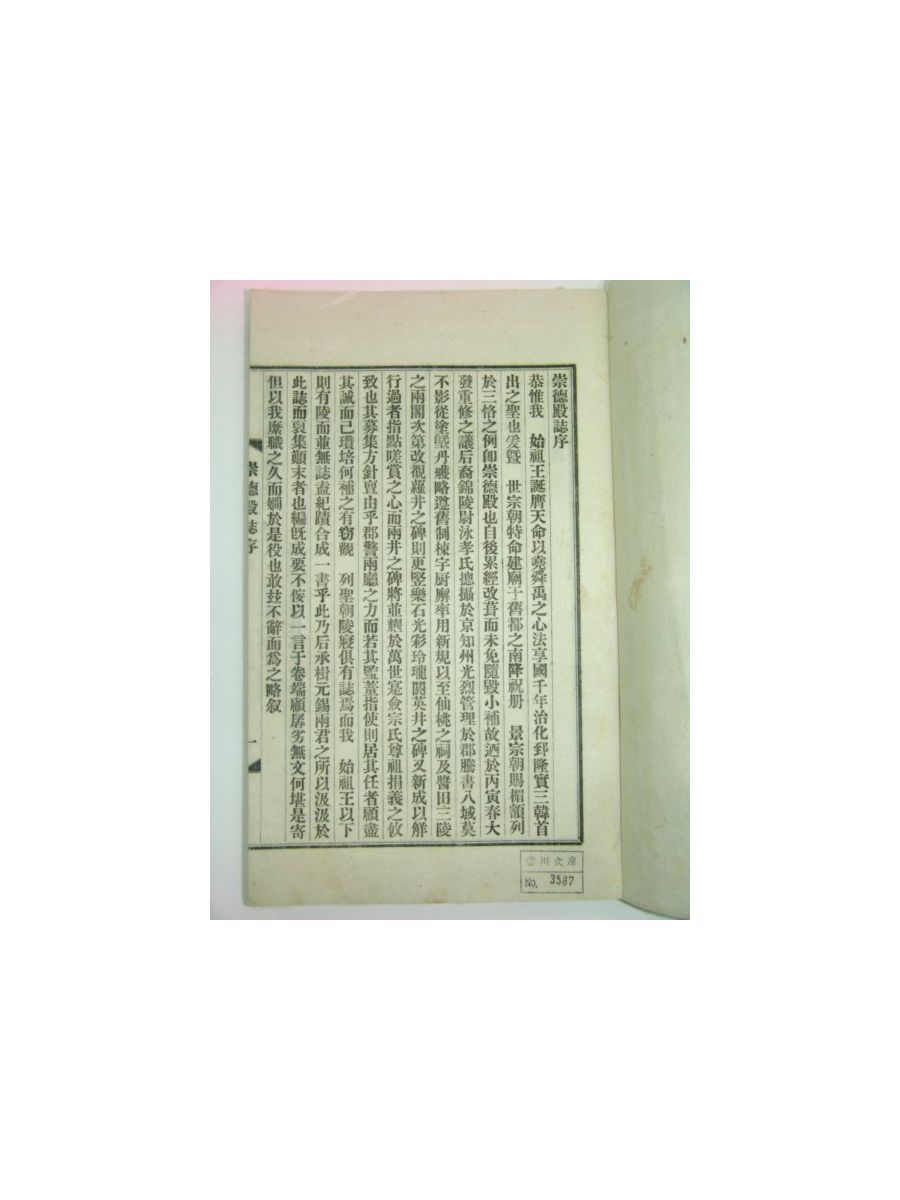 崇德殿誌序
恭惟我　始祖王誕膺天命以堯舜禹之心法享國千年治化郅隆實三韓首
出之聖也爰曁　世宗朝特命建廟于舊都之南降祝册　景宗朝賜楣額列
於三恪之例卽崇德殿也自後累經改葺而未免隨毁小補故迺於丙寅春大
發重修之議后裔錦陵尉泳孝氏摠攝於京知州光烈管理於郡騰書八域莫
不影從塗墍丹雘略遵舊制棟宇厨廨率用新規以至仙桃之祠及醬田三陵
之兩閣次第改觀蘿井之碑則更竪樂石光彩玲瓏閼英井之碑又新成以鮮
行過者指點嗟賞之心而兩井之碑將並耀於萬世寔僉宗氏尊祖捐義之攸
致也其募集方針亶由乎郡警兩廳之力而若其監董指使則居其任者顧盡
其誠而已瓚培何補之有竊觀　列聖朝陵寢俱有誌焉而我　始祖王以下
則有陵而並無誌盍紀蹟合成一書乎此乃后承楫元錫兩君之所以汲汲於
此誌而裒集顚末者也編旣成要不侫以一言于卷端顧孱劣無文何堪是寄
但以我縻職之久而嫺於是役也敢玆不辭而爲之略叙
崇德殿誌序
一
雲川文庫
No. 3587